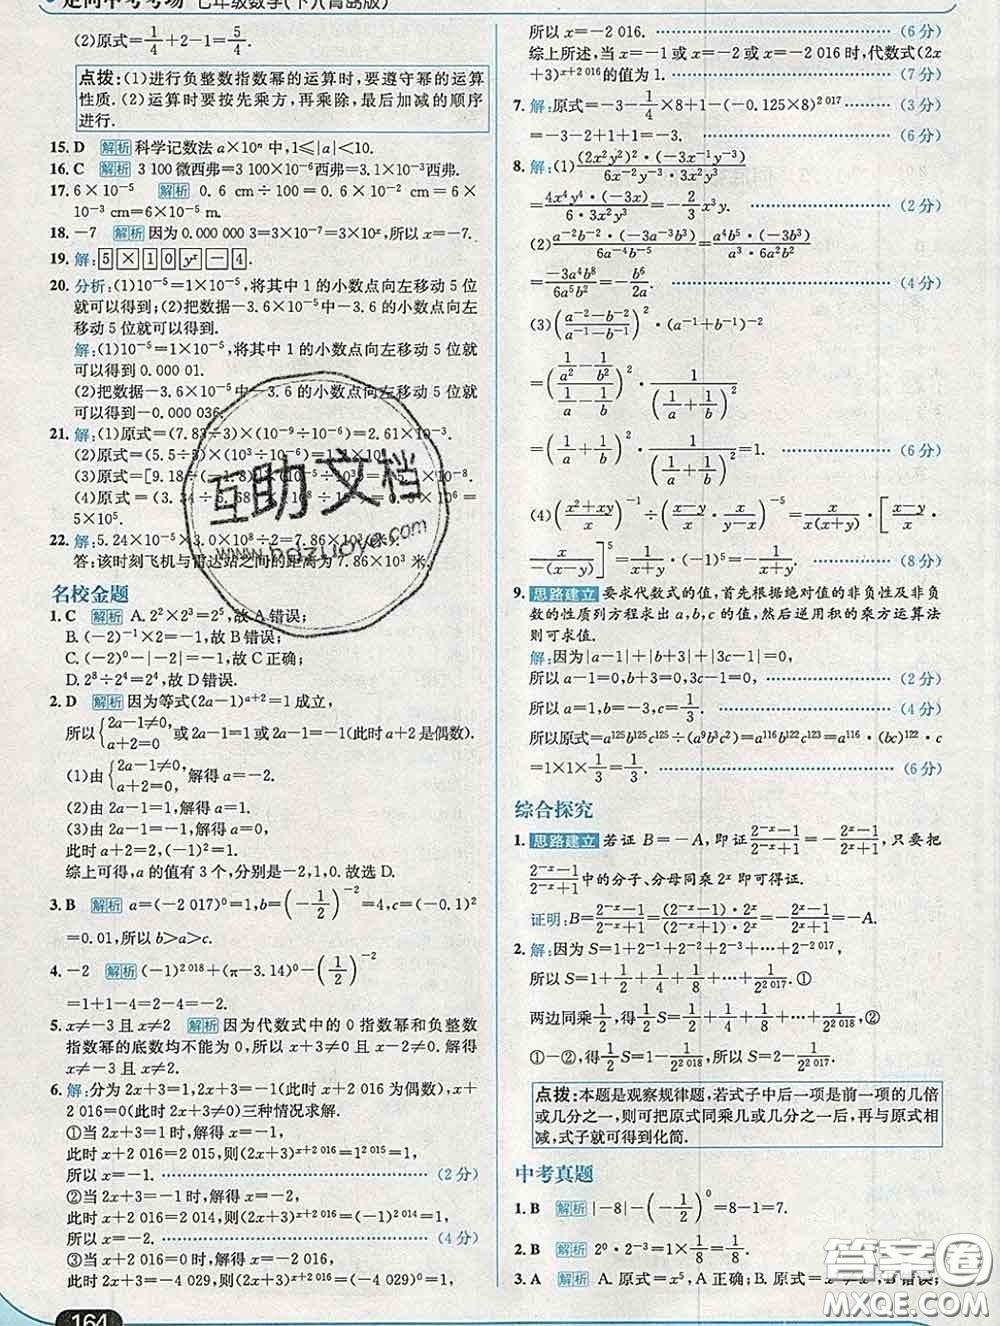 走向中考考场 七年级数学(下)(青岛版)
(2)原式=1/4+2-1=5/4.
点拨:(1)进行负整数指数幂的运算时,要遵守幂的运算
性质.(2)运算时要按先乘方,再乘除,最后加减的顺序
进行.
15. D 解析 科学记数法 a×10ⁿ 中,1≤|a|<10.
16. C 解析 3 100 微西弗=3 100×10⁻⁶西弗=3.1×10⁻³西弗.
17. 6×10⁻⁵ 解析 0.6 cm÷100=0.6×10⁻² cm=6×
10⁻³ cm=6×10⁻⁵ m.
18. -7 解析 因为 0.000 000 3=3×10⁻⁷=3×10ˣ,所以 x=-7.
19. 解: 5 × 1 0 yˣ - 4 .
20. 分析:(1)10⁻⁵=1×10⁻⁵,将其中 1 的小数点向左移动 5 位
就可以得到;(2)把数据-3.6×10⁻⁵中-3.6 的小数点向左
移动 5 位就可以得到.
解:(1)10⁻⁵=1×10⁻⁵,将其中 1 的小数点向左移动 5 位就
可以得到 0.000 01.
(2)把数据-3.6×10⁻⁵中-3.6 的小数点向左移动 5 位就
可以得到-0.000 036.
21. 解:(1)原式=(7.83÷3)×(10⁻⁹÷10⁻⁶)=2.61×10⁻³.
(2)原式=(5.5÷5)×(10³÷10⁻
(3)原式=[9.18÷(-1.8)]×(10⁻
(4)原式=(3.
5×10⁵.
22. 解:5.24×10⁻⁵×3.0×10⁸÷2=7.86×10³
答:该时刻飞机与雷达站之间的距离为 7.86×10³ 米.
互助文档
www.hdzuoye.com
名校金题
1. C 解析 A. 2²×2³=2⁵,故 A 错误;
B. (-2)⁻¹×2=-1,故 B 错误;
C. (-2)⁰-|-2|=-1,故 C 正确;
D. 2⁸÷2⁴=2⁴,故 D 错误.
2. D 解析 因为等式(2a-1)ᵃ⁺²=1 成立,
所以{2a-1≠0, a+2=0 或 2a-1=1 或 2a-1=-1(此时 a+2 是偶数).
(1)由{2a-1≠0, a+2=0,解得 a=-2.
(2)由 2a-1=1,解得 a=1.
(3)由 2a-1=-1,解得 a=0,
此时 a+2=2,(-1)²=1.
综上可得,a 的值有 3 个,分别是-2,1,0. 故选 D.
3. B 解析 a=(-2 017)⁰=1,b=(-1/2)⁻²=4,c=(-0.1)²
=0.01,所以 b>a>c.
4. -2 解析 (-1)²⁰¹⁸+(π-3.14)⁰-(1/2)⁻²
=1+1-4=2-4=-2.
5. x≠-3 且 x≠2 解析 因为代数式中的 0 指数幂和负整数
指数幂的底数均不能为 0,所以 x+3≠0 且 x-2≠0. 解得
x≠-3 且 x≠2.
6. 解:分为 2x+3=1,2x+3=-1(此时 x+2 016 为偶数),x+
2 016=0(此时 2x+3≠0)三种情况求解.
①当 2x+3=1 时,解得 x=-1,
此时 x+2 016=2 015,则(2x+3)ˣ⁺²⁰¹⁶=1²⁰¹⁵=1,
所以 x=-1. (2 分)
②当 2x+3=-1 时,解得 x=-2,
此时 x+2 016=2 014,则(2x+3)ˣ⁺²⁰¹⁶=(-1)²⁰¹⁴=1,
所以 x=-2. (4 分)
③当 x+2 016=0 时,解得 x=-2 016,
此时 2x+3=-4 029,则(2x+3)ˣ⁺²⁰¹⁶=(-4 029)⁰=1,
所以 x=-2 016. (6 分)
综上所述,当 x=-1 或 x=-2 或 x=-2 016 时,代数式(2x
+3)ˣ⁺²⁰¹⁶的值为 1. (7 分)
7. 解:原式=-3-1/4×8+1-(-0.125×8)²⁰¹⁷ (3 分)
=-3-2+1+1=-3. (6 分)
8. 解:(1)(2x²y²)²·(-3x⁻¹y³)/(6x⁻²·3x²y³)
=4x⁴y⁴·(-3x)/(6·3x²y³)=-2/3 x³y. (2 分)
(2)a⁻²b⁻²·(-3a⁻³b³)/(6a⁻⁴b⁻⁵)=a⁴b⁵·(-3b³)/(a³·6a²b²)
=-3a⁴b⁸/(6a⁵b²)=-b⁶/(2a). (4 分)
(3)((a⁻²-b⁻²)/(a⁻¹-b⁻¹))²·(a⁻¹+b⁻¹)⁻²
=((1/a²-1/b²)/(1/a-1/b))²·1/(1/a+1/b)²
=(1/a+1/b)²·1/(1/a+1/b)²=1. (6 分)
(4)((x²+xy)/x)⁻¹÷((x-y)/x·x/(y-x))⁻⁵=x/(x(x+y))·[(x-y)/x·
x/(-(x-y))]⁵=1/(x+y)·(-1)=-1/(x+y). (8 分)
9. 思路建立 要求代数式的值,首先根据绝对值的非负性及非负
数的性质列方程求出 a,b,c 的值,然后逆用积的乘方运算法
则可求值.
解:因为|a-1|+|b+3|+|3c-1|=0,
所以 a-1=0,b+3=0,3c-1=0, (2 分)
所以 a=1,b=-3,c=1/3. (4 分)
所以原式=a¹²⁵b¹²⁵c¹²⁵÷(a⁹b³c²)=a¹¹⁶b¹²²c¹²³=a¹¹⁶·(bc)¹²²·c
=1×1×1/3=1/3. (6 分)
综合探究
1. 思路建立 若证 B=-A,即证(2⁻ˣ-1)/(2⁻ˣ+1)=-(2ˣ-1)/(2ˣ+1),只要把
(2⁻ˣ-1)/(2⁻ˣ+1)中的分子、分母同乘 2ˣ 即可得证.
证明:B=(2⁻ˣ-1)/(2⁻ˣ+1)=(2⁻ˣ-1)·2ˣ/((2⁻ˣ+1)·2ˣ)=-(2ˣ-1)/(2ˣ+1)=-A.
2. 解:因为 S=1+2⁻¹+2⁻²+2⁻³+…+2⁻²⁰¹⁷,
所以 S=1+1/2+1/4+1/8+…+1/2²⁰¹⁷,①
两边同乘1/2,得1/2 S=1/2+1/4+1/8+…+1/2²⁰¹⁸,②
①-②,得1/2 S=1-1/2²⁰¹⁸,所以 S=2-1/2²⁰¹⁷.
点拨:本题是观察规律题,若式子中后一项是前一项的几倍
或几分之一,则可把原式同乘几或几分之一后,再与原式相
减,式子就可得到化简.
中考真题
1. B 解析 |-8|-(-1/2)⁰=8-1=7.
2. B 解析 2⁰·2⁻³=1×1/8=1/8.
3. A 解析 A. 原式=x⁵,A 正确;
B 错误;
164
答案圈
MXQE.COM